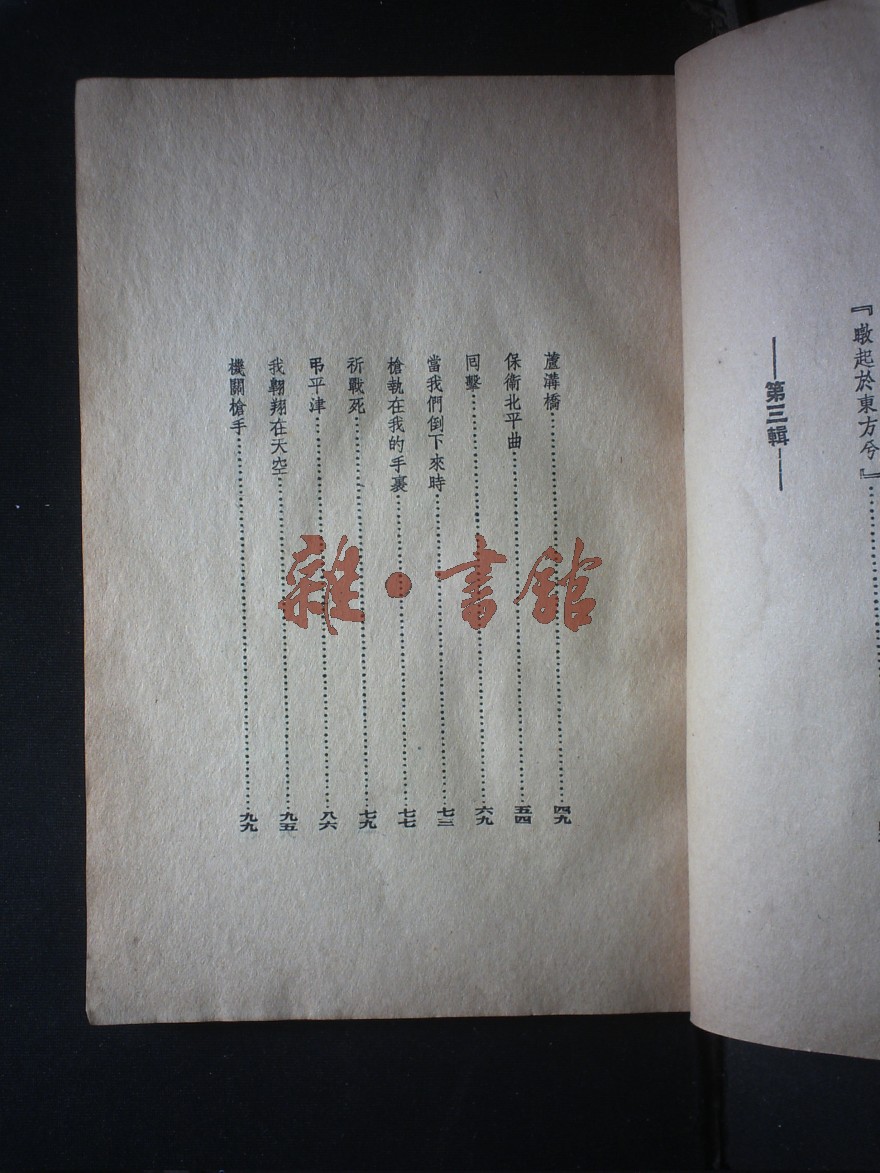 『暾起於東方兮』
第三輯
蘆溝橋 四九
保衛北平曲 五四
囘擊 六九
當我們倒下來時 七三
槍執在我的手裏 七七
祈戰死 七九
弔平津 八六
我翺翔在天空 九五
機關槍手 九九
雜·書館